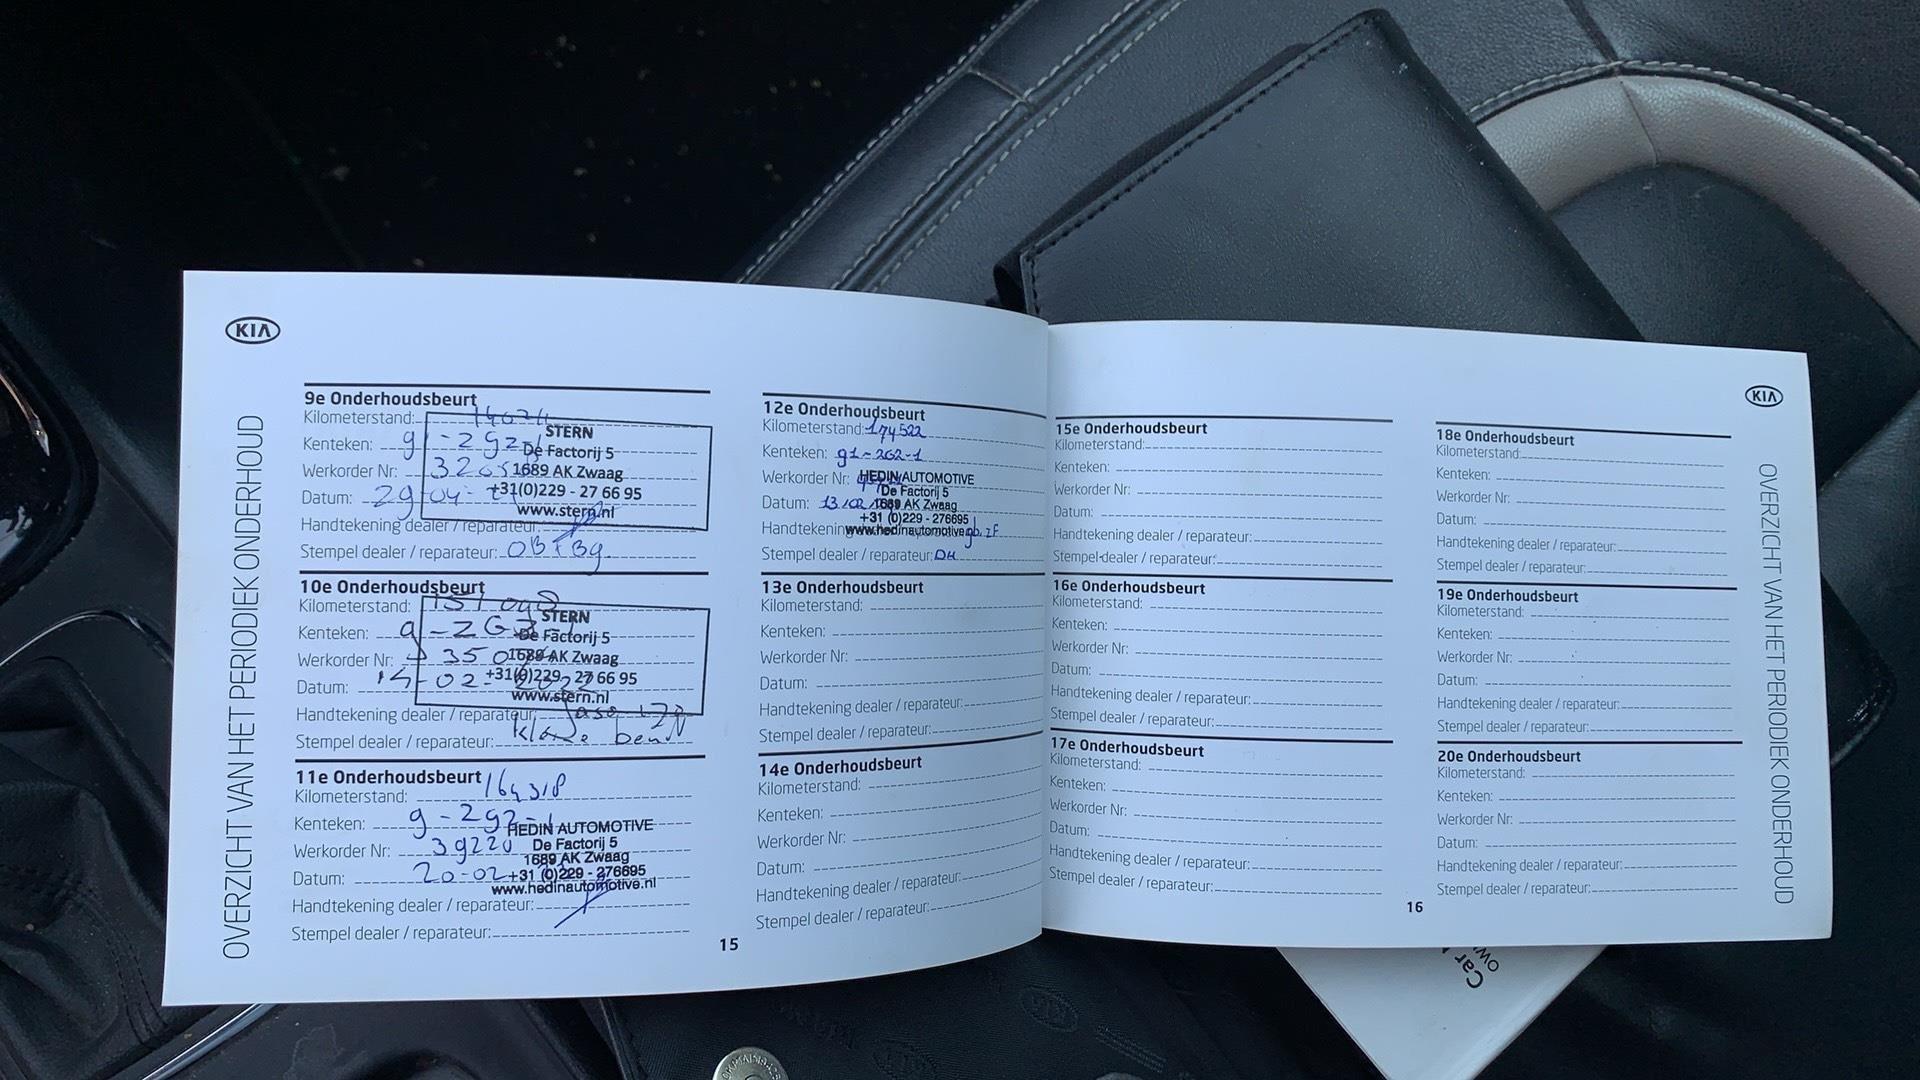 KIA
OVERZICHT VAN HET PERIODIEK ONDERHOUD
9e Onderhoudsbeurt
Kilometerstand:
Kenteken:
Werkorder Nr:
Datum: 29-04-
Handtekening dealer / reparateur:
Stempel dealer / reparateur:
STERN
De Factorij 5
1689 AK Zwaag
+31(0)229 - 27 66 95
www.stern.nl
10e Onderhoudsbeurt
Kilometerstand:
Kenteken:
Werkorder Nr:
Datum: 14-02-2022
Handtekening dealer / reparateur:
Stempel dealer / reparateur: beurt
STERN
De Factorij 5
1689 AK Zwaag
+31(0)229 - 27 66 95
www.stern.nl
11e Onderhoudsbeurt
Kilometerstand: 164318
Kenteken:
Werkorder Nr: 39220
Datum: 20-02
Handtekening dealer / reparateur:
Stempel dealer / reparateur:
HEDIN AUTOMOTIVE
De Factorij 5
1689 AK Zwaag
+31 (0)229 - 276695
www.hedinautomotive.nl
12e Onderhoudsbeurt
Kilometerstand: 174522
Kenteken:
Werkorder Nr:
Datum: 13/02
Handtekening
Stempel dealer / reparateur: DH
HEDIN AUTOMOTIVE
De Factorij 5
1689 AK Zwaag
+31 (0)229 - 276695
www.hedinautomotive
13e Onderhoudsbeurt
Kilometerstand:
Kenteken:
Werkorder Nr:
Datum:
Handtekening dealer / reparateur:
Stempel dealer / reparateur:
14e Onderhoudsbeurt
Kilometerstand:
Kenteken:
Werkorder Nr:
Datum:
Handtekening dealer / reparateur:
Stempel dealer / reparateur:
15
15e Onderhoudsbeurt
Kilometerstand:
Kenteken:
Werkorder Nr:
Datum:
Handtekening dealer / reparateur:
Stempel dealer / reparateur:
16e Onderhoudsbeurt
Kilometerstand:
Kenteken:
Werkorder Nr:
Datum:
Handtekening dealer / reparateur:
Stempel dealer / reparateur:
17e Onderhoudsbeurt
Kilometerstand:
Kenteken:
Werkorder Nr:
Datum:
Handtekening dealer / reparateur:
Stempel dealer / reparateur:
KIA
18e Onderhoudsbeurt
Kilometerstand:
Kenteken:
Werkorder Nr:
Datum:
Handtekening dealer / reparateur:
Stempel dealer / reparateur:
19e Onderhoudsbeurt
Kilometerstand:
Kenteken:
Werkorder Nr:
Datum:
Handtekening dealer / reparateur:
Stempel dealer / reparateur:
20e Onderhoudsbeurt
Kilometerstand:
Kenteken:
Werkorder Nr:
Datum:
Handtekening dealer / reparateur:
Stempel dealer / reparateur:
16
OVERZICHT VAN HET PERIODIEK ONDERHOUD
Car